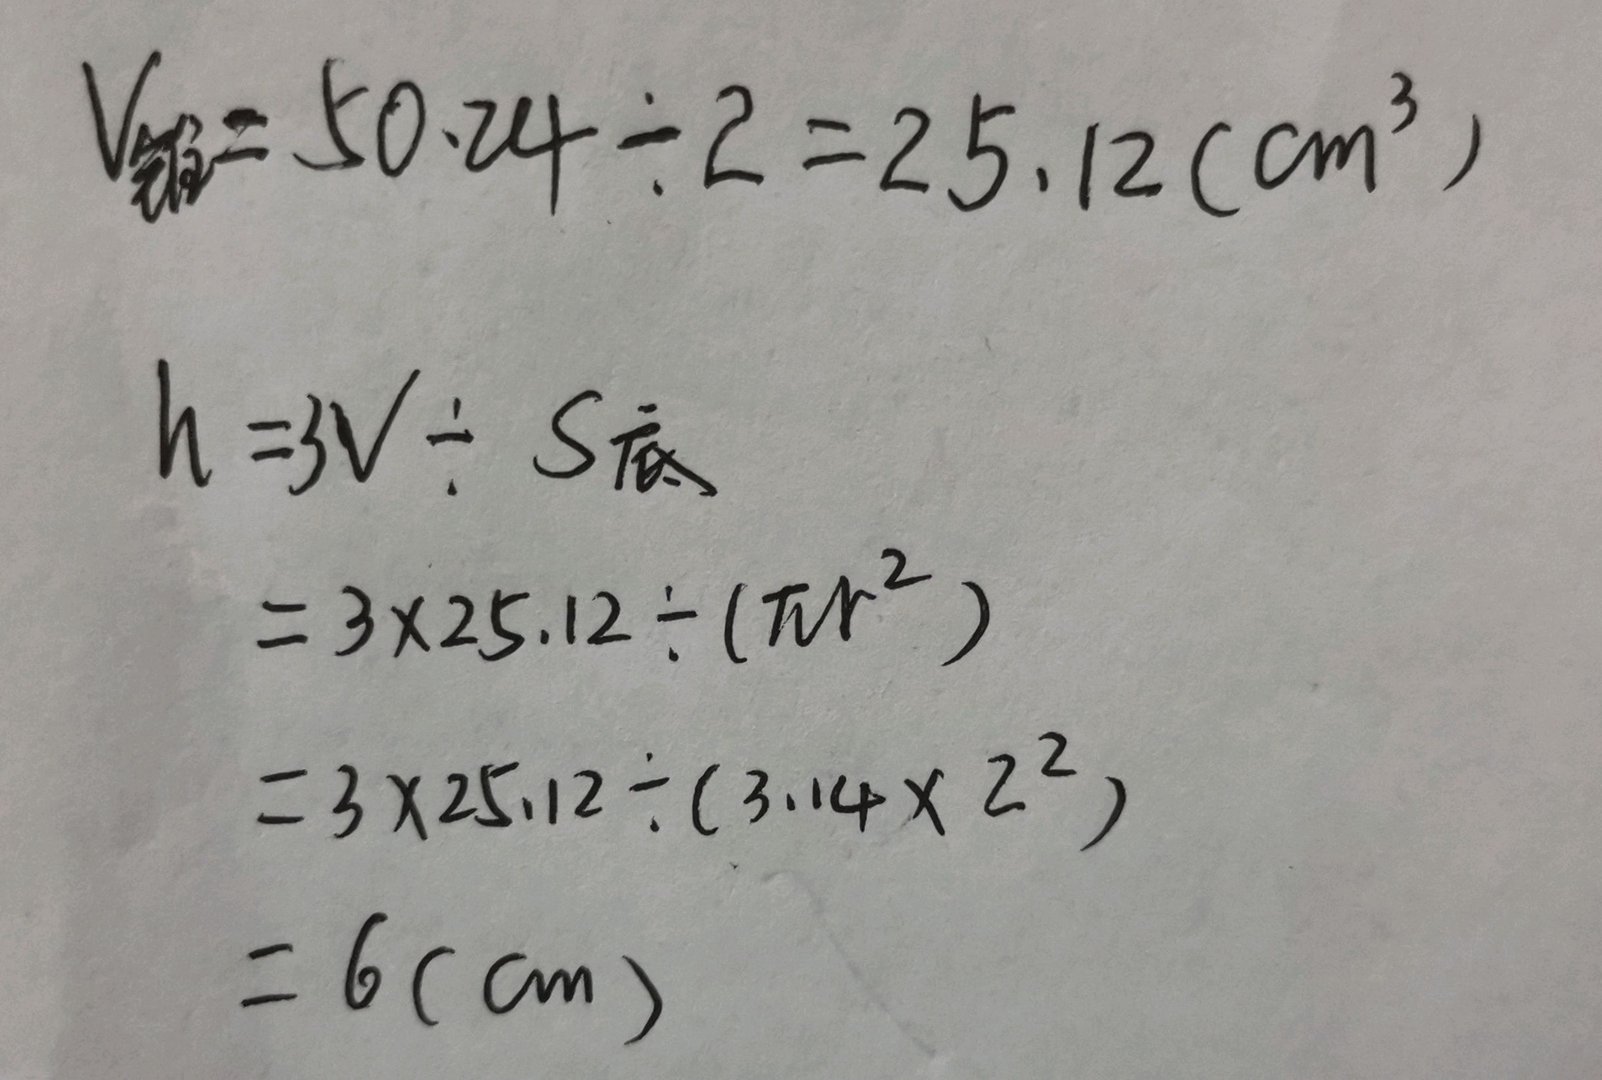 V锥=50.24÷2=25.12(cm³)
h=3V÷S底
=3×25.12÷(πr²)
=3×25.12÷(3.14×2²)
=6(cm)